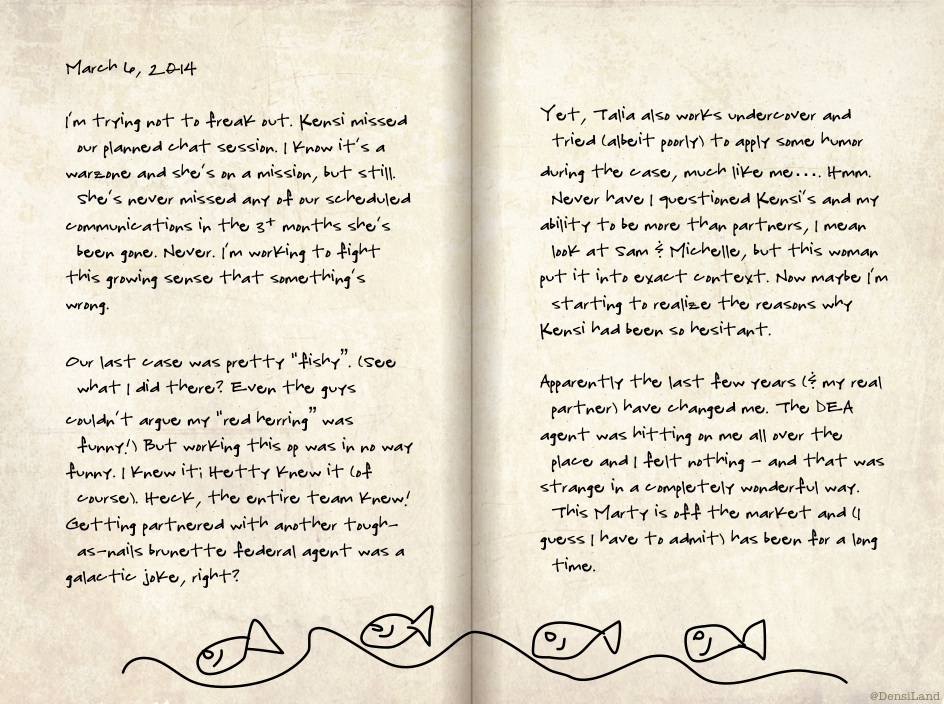 March 6, 2014
I'm trying not to freak out. Kensi missed
our planned chat session. I know it's a
warzone and she's on a mission, but still.
She's never missed any of our scheduled
communications in the 3+ months she's
been gone. Never. I'm working to fight
this growing sense that something's
wrong.
Our last case was pretty "fishy". (See
what I did there? Even the guys
couldn't argue my "red herring" was
funny!) But working this op was in no way
funny. I knew it; Hetty knew it (of
course). Heck, the entire team knew!
Getting partnered with another tough-
as-nails brunette federal agent was a
galactic joke, right?
Yet, Talia also works undercover and
tried (albeit poorly) to apply some humor
during the case, much like me.... Hmm.
Never have I questioned Kensi's and my
ability to be more than partners, I mean
look at Sam & Michelle, but this woman
put it into exact context. Now maybe I'm
starting to realize the reasons why
Kensi had been so hesitant.
Apparently the last few years (& my real
partner) have changed me. The DEA
agent was hitting on me all over the
place and I felt nothing – and that was
strange in a completely wonderful way.
This Marty is off the market and (I
guess I have to admit) has been for a long
time.
@DensiLand